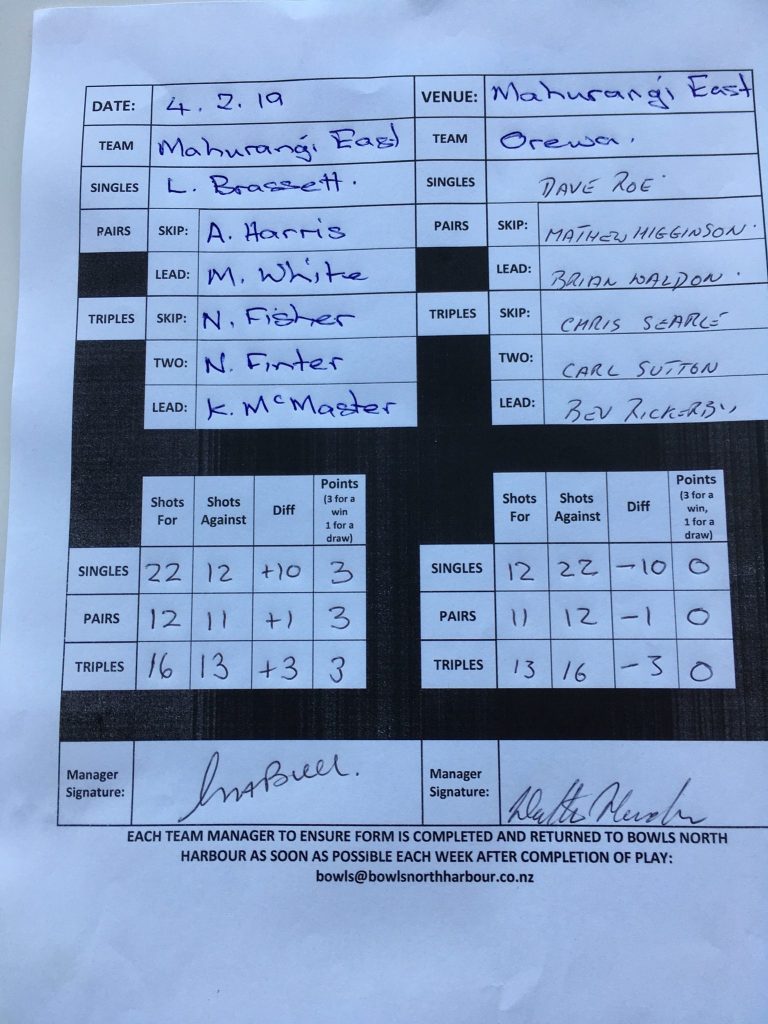 DATE: 4.2.19 VENUE: Mahurangi East
TEAM Mahurangi East TEAM Orewa.
SINGLES L. Brassett. SINGLES DAVE ROE
PAIRS SKIP: A. Harris PAIRS SKIP: MATHEW HIGGINSON.
LEAD: M. White LEAD: BRIAN WALDON.
TRIPLES SKIP: N. Fisher TRIPLES SKIP: CHRIS SEARLE
TWO: N. Finter TWO: CARL SUTTON
LEAD: K. McMaster LEAD: BEV RICKERBY
Shots For Shots Against Diff Points (3 for a win 1 for a draw) Shots For Shots Against Diff Points (3 for a win, 1 for a draw)
SINGLES 22 12 +10 3 SINGLES 12 22 -10 0
PAIRS 12 11 +1 3 PAIRS 11 12 -1 0
TRIPLES 16 13 +3 3 TRIPLES 13 16 -3 0
Manager Signature: Manager Signature:
EACH TEAM MANAGER TO ENSURE FORM IS COMPLETED AND RETURNED TO BOWLS NORTH
HARBOUR AS SOON AS POSSIBLE EACH WEEK AFTER COMPLETION OF PLAY:
bowls@bowlsnorthharbour.co.nz